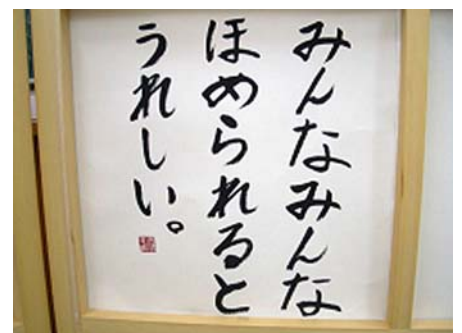 みんなみんな
ほめられると
うれしい。